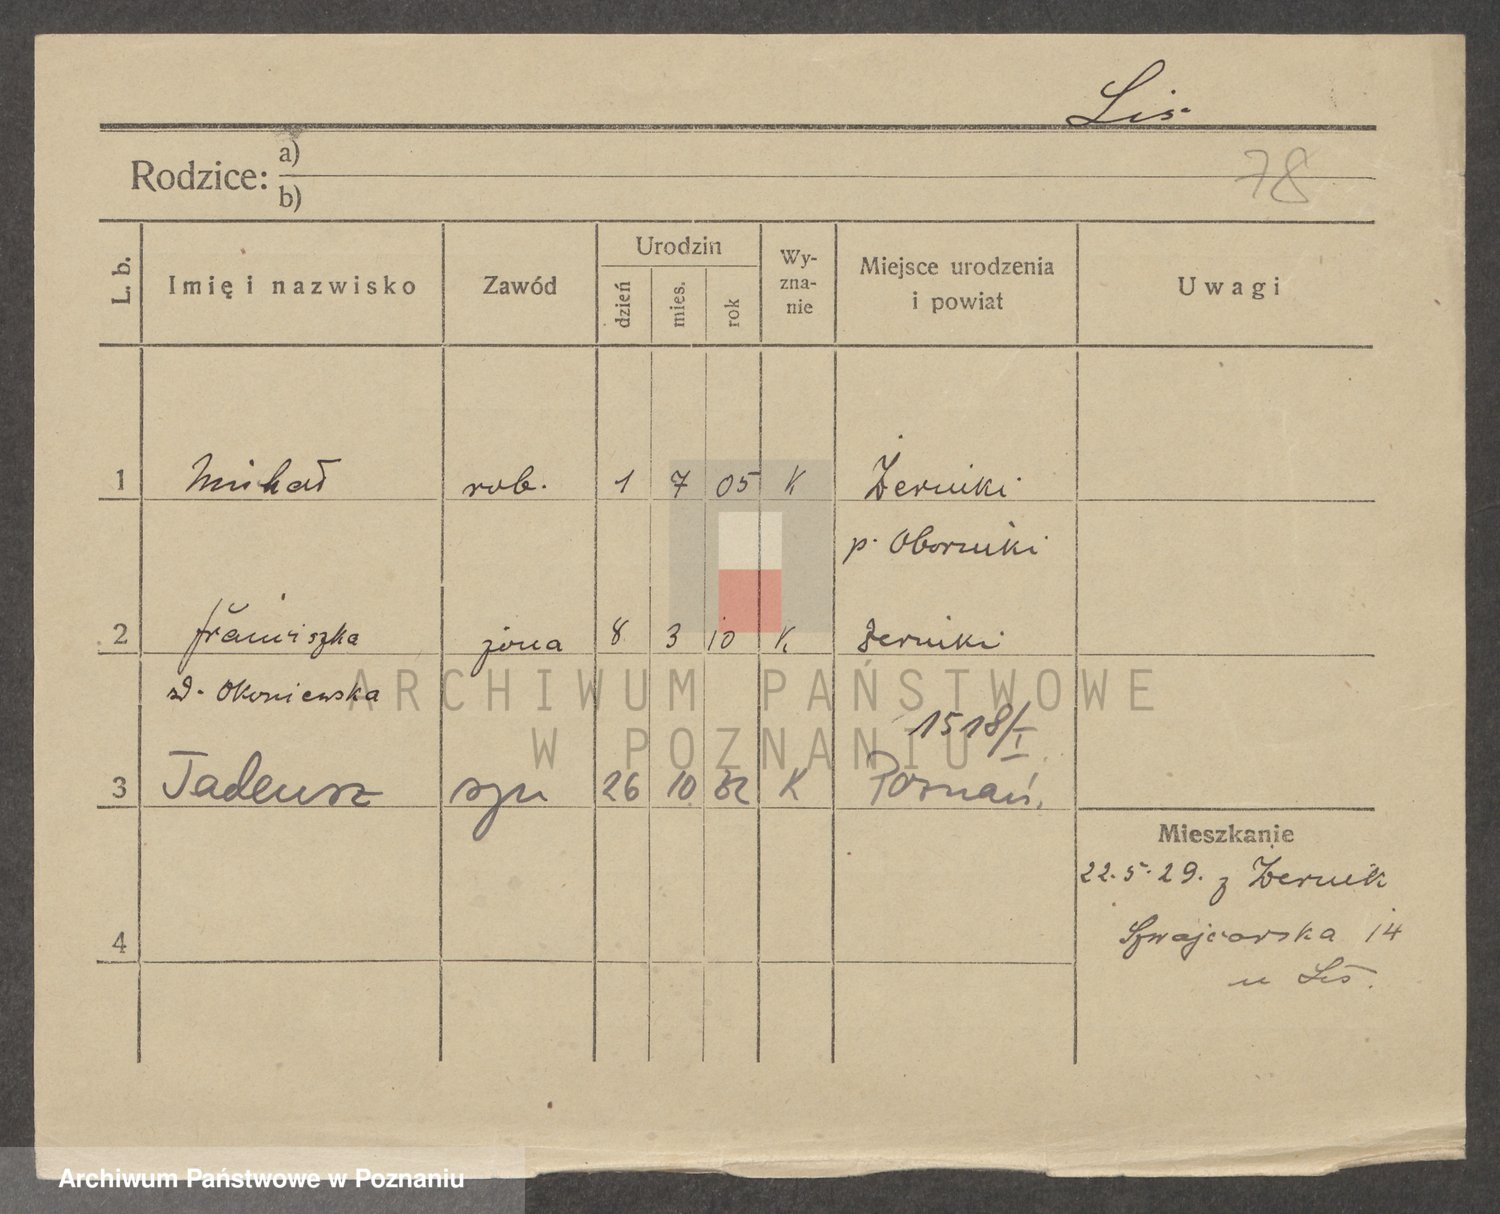 Liś
Rodzice: a)
b)
78
L. b. Imię i nazwisko Zawód Urodzin dzień mies. rok Wy-zna-nie Miejsce urodzenia i powiat Uwagi
1 Michał rob. 1 7 05 K Żerniki
p. Oborniki
2 Franciszka żona 8 3 10 K Żerniki
zd. Okoniewska
1518/I
3 Tadeusz syn 26 10 32 K Poznań.
Mieszkanie
22.5.29. z Żernik
4
Szwajcarska 14
u Liś.
ARCHIWUM PAŃSTWOWE
W POZNANIU
Archiwum Państwowe w Poznaniu